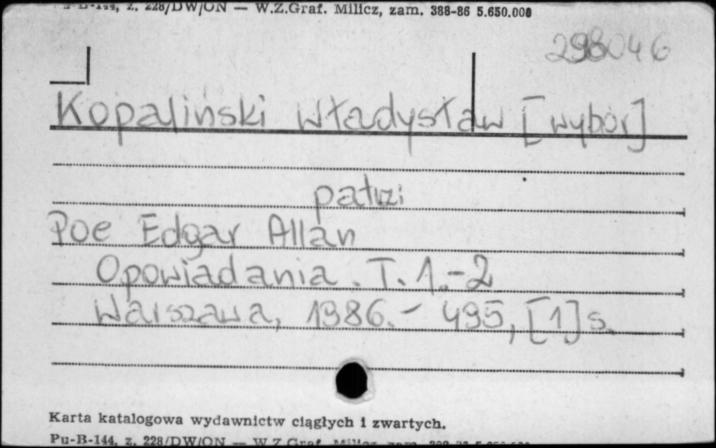 z. 228/DW/ON — W.Z.Graf. Milicz, zam. 388-86 5.650.000
298046
Kopaliński Władysław [wybór]
patrzi
Poe Edgar Allan
Opowiadania. T. 1.-2
Warszawa, 1986.- 495, [1] s.
Karta katalogowa wydawnictw ciągłych i zwartych.
Pu-B-144, z. 228/DW/ON — W.Z.Graf. Milicz, zam.